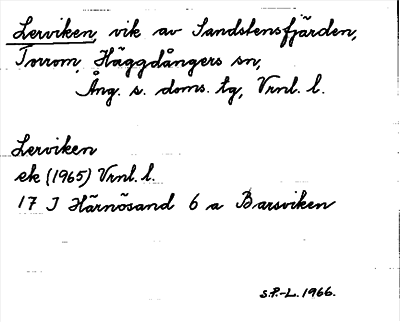 Lerviken, vik av Sandstensfjärden,
Torrom, Häggdångers sn,
Ång. s. doms. tg, Vrnl. l.
Lerviken
ek (1965) Vrnl. l.
17 J Härnösand 6 a Barsviken
S.P.-L. 1966.